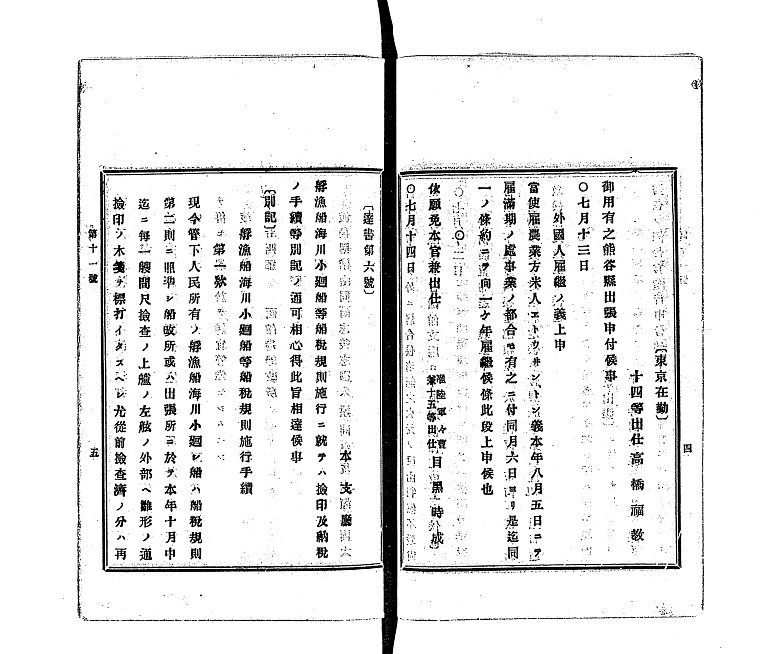 〔東京在勤〕
十四等出仕高橋福教
御用有之熊谷縣出張申付候事
〇七月十三日
外國人雇繼ノ義上申
當使雇農業方米人エトウサントン義本年八月五日ニテ
雇滿期ノ處事業ノ都合モ有之ニ付同月六日ヨリ是迄同
一ノ條約ニテ向一ケ年雇繼候條此段上申候也
兼十五等出仕
目黑時成
依願免本官兼出仕
〇七月十四日
四
〔達書第六號〕
本支廳
艀漁船海川小廻船等船稅規則施行ニ就テハ撿印及納稅
ノ手續等別記ノ通可相心得此旨相達候事
〔別記〕
艀漁船海川小廻船等船稅規則施行手續
第一欵
現今管下人民所有ノ艀漁船海川小廻シ船ハ船稅規則
第二則ニ照準シ船改所或ハ出張所ニ於テ本年十月中
迄ニ每一艘間尺撿查ノ上艫ノ左舷ノ外部ヘ雛形ノ通
撿印ノ木箋ヲ標打イタスヘシ尤從前撿查濟ノ分ハ再
第十一號
五